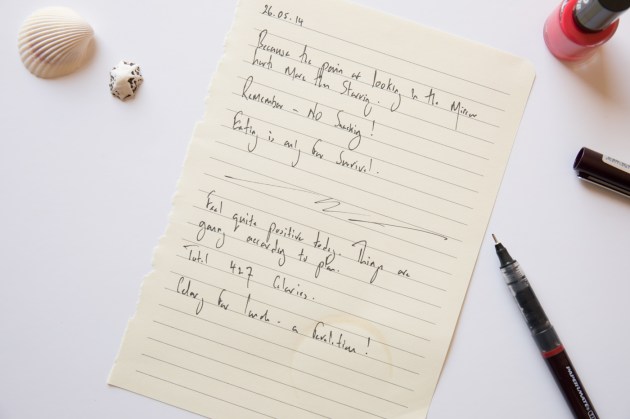 26.05.14
Because the pain of looking in the Mirror
hurts More then Starving.
Remember - NO Snacking!
Eating is only for Survival.
Feel quite positive today. Things are
going according to plan.
Total 427 Calories.
Celery for lunch - a Revelation!
PAPERMATE